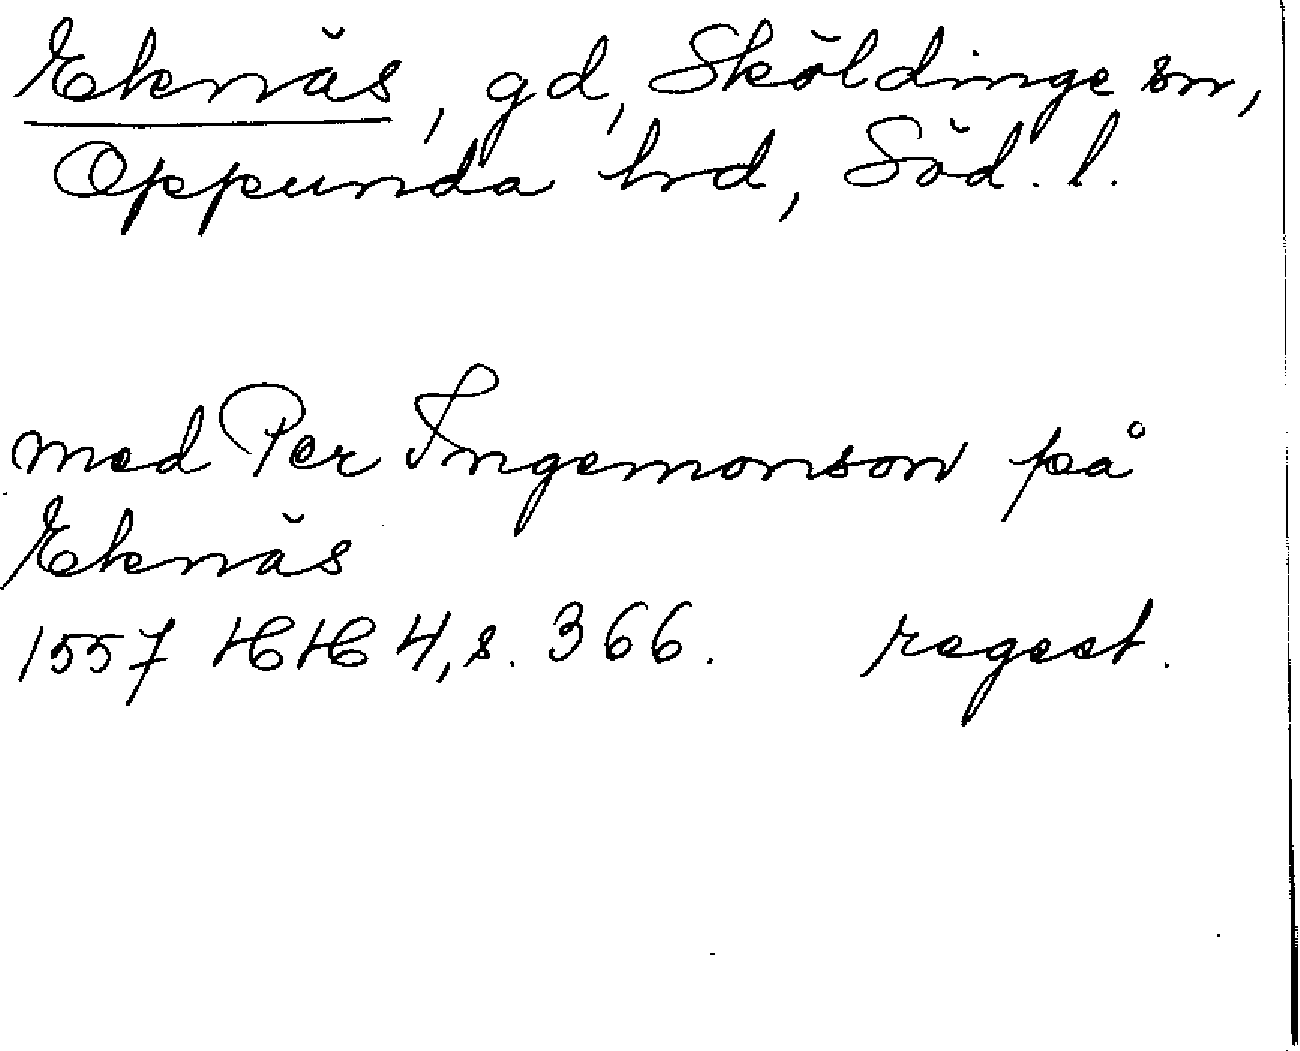 Eknäs, gd, Sköldinge sn,
Oppunda hrd, Söd. l.
med Per Ingemonson på
Eknäs
1557 HH 4, s. 366. regest.